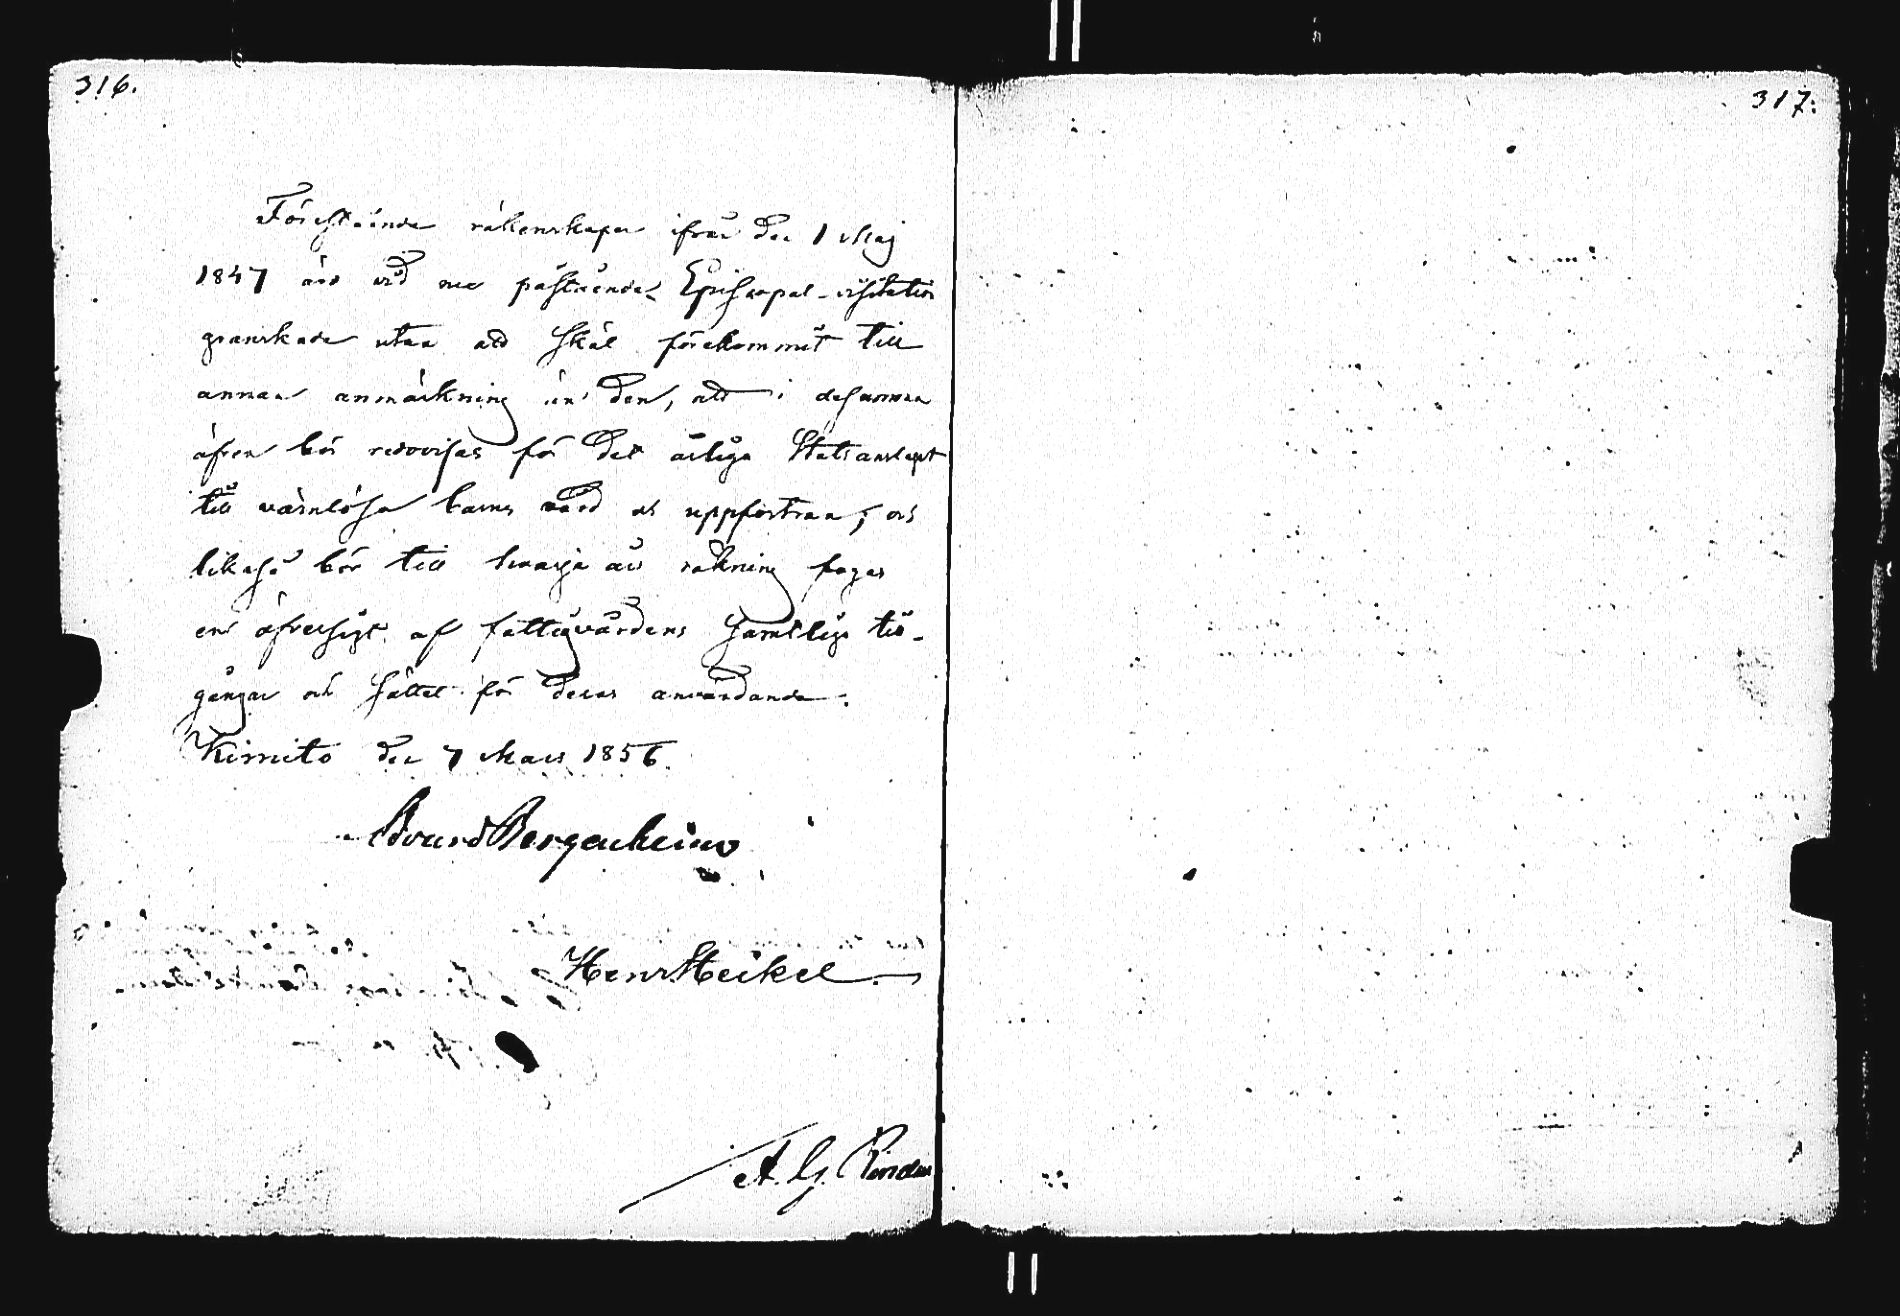 316.
317.
Förestående räkenskaper ifrån den 1 Maj
1847 äro vid nu påstående Episcopal-visitation
granskade utan att skäl förekommit till
annan anmärkning än den, att i desamma
äfven bör redovisas för det årliga Statsanslaget
till värnlösa barns vård och uppfostran; och
likaså bör till hvarje års räkning fogas
en öfversigt af fattigvårdens samtliga till-
gångar och sättet för deras användande.
Kimito den 7 Mars 1856.
Edvard Bergenheim
Henr Heikel
A. G.